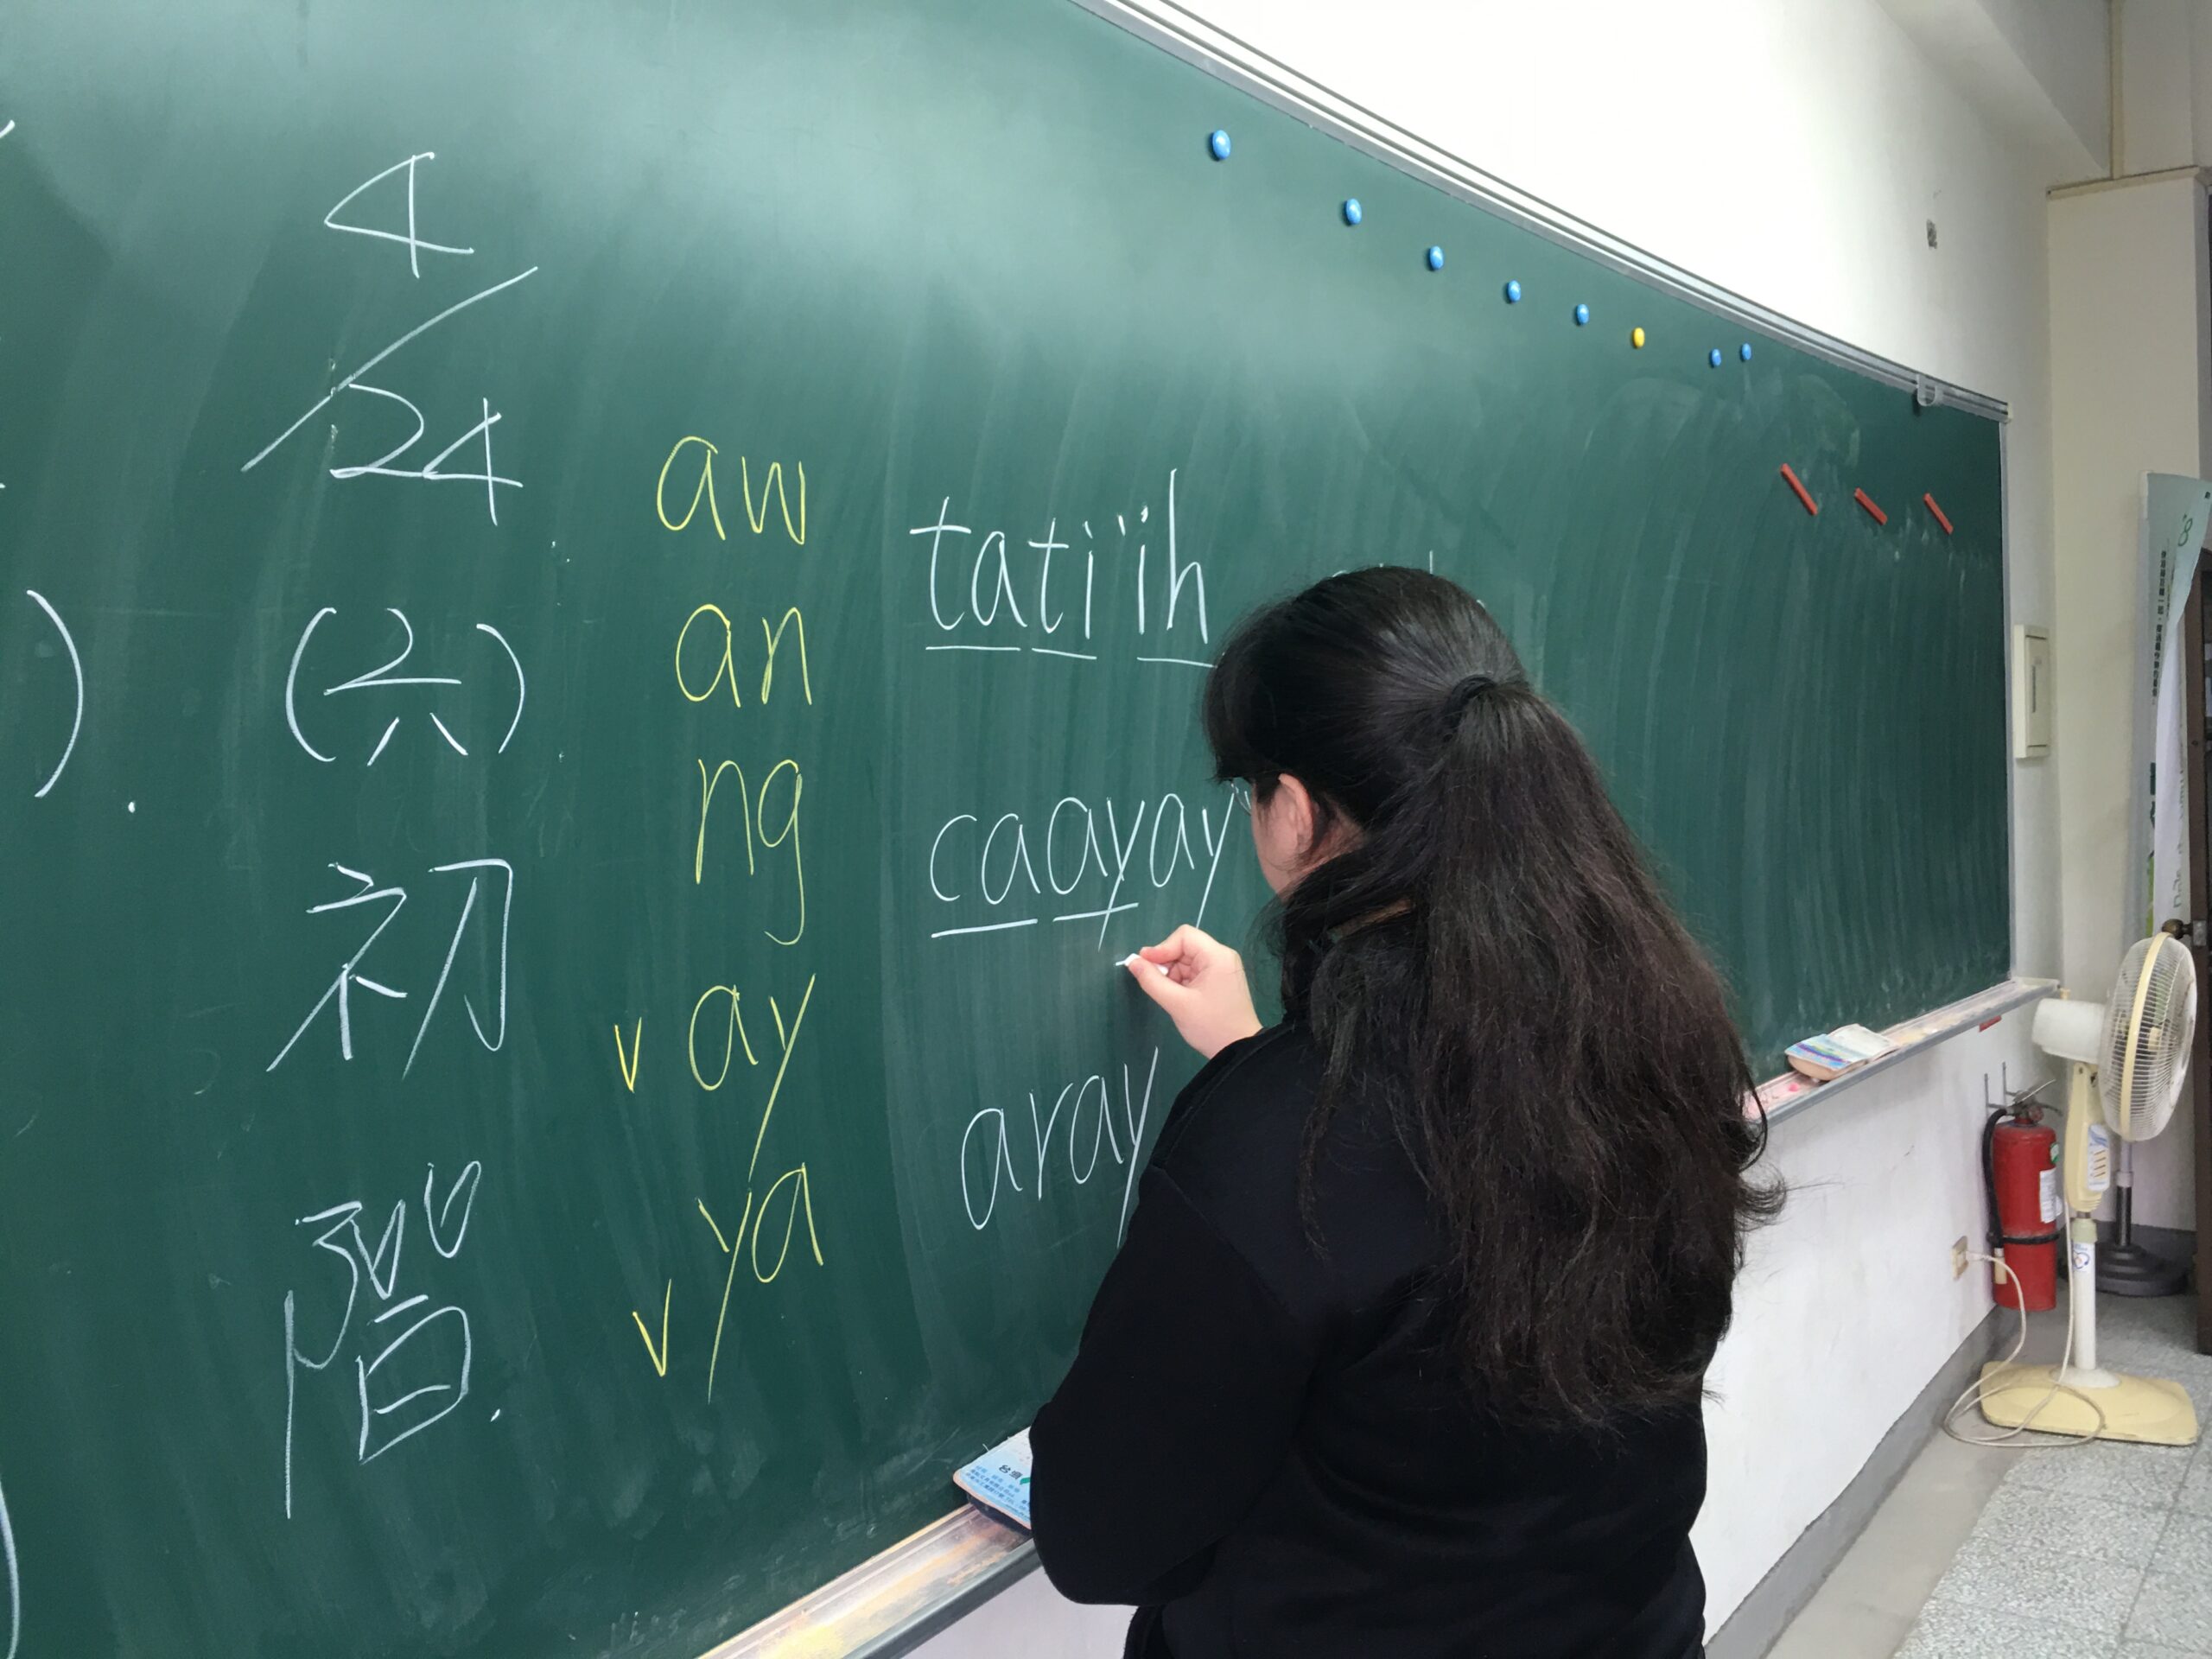 4/24
(六)
初
階
aw
an
ng
v ay
v ya
tati'ih
caayay
aray